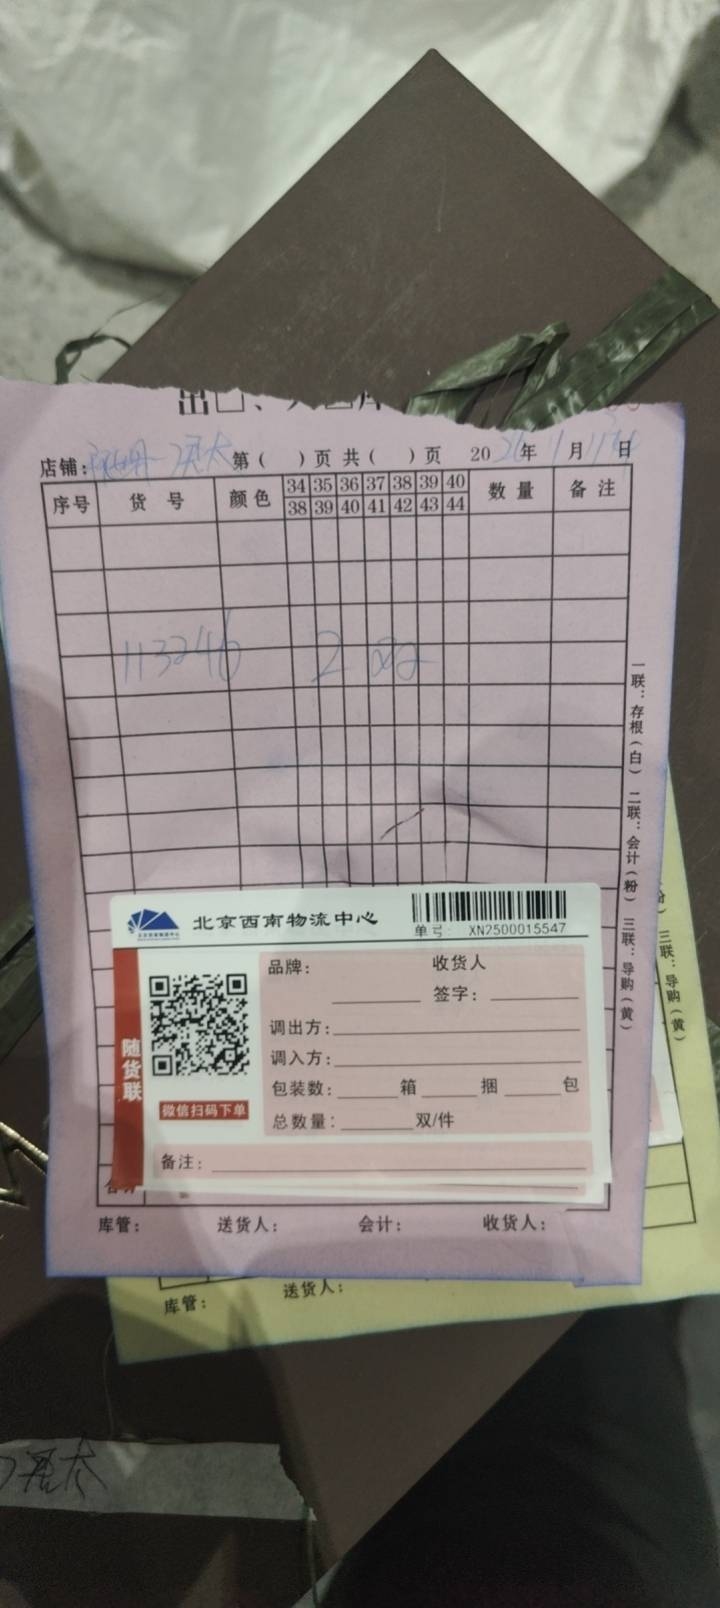 店铺: 第( )页 共( )页 20 年 月 日
序号 货号 颜色 34 35 36 37 38 39 40 数量 备注
38 39 40 41 42 43 44
113246 2
一联:存根(白) 二联:会计(粉) 三联:导购(黄)
北京西南物流中心
单号: XN2500015547
随货联
微信扫码下单
品牌: 收货人
签字:
调出方:
调入方:
包装数: 箱 捆 包
总数量: 双/件
备注:
库管: 送货人: 会计: 收货人:
三联:导购(黄)
库管: 送货人: